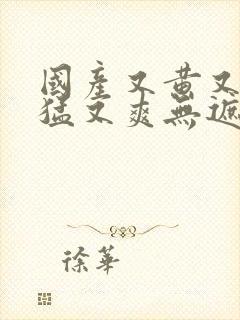 國產又黃又
猛又爽無遮
徐華